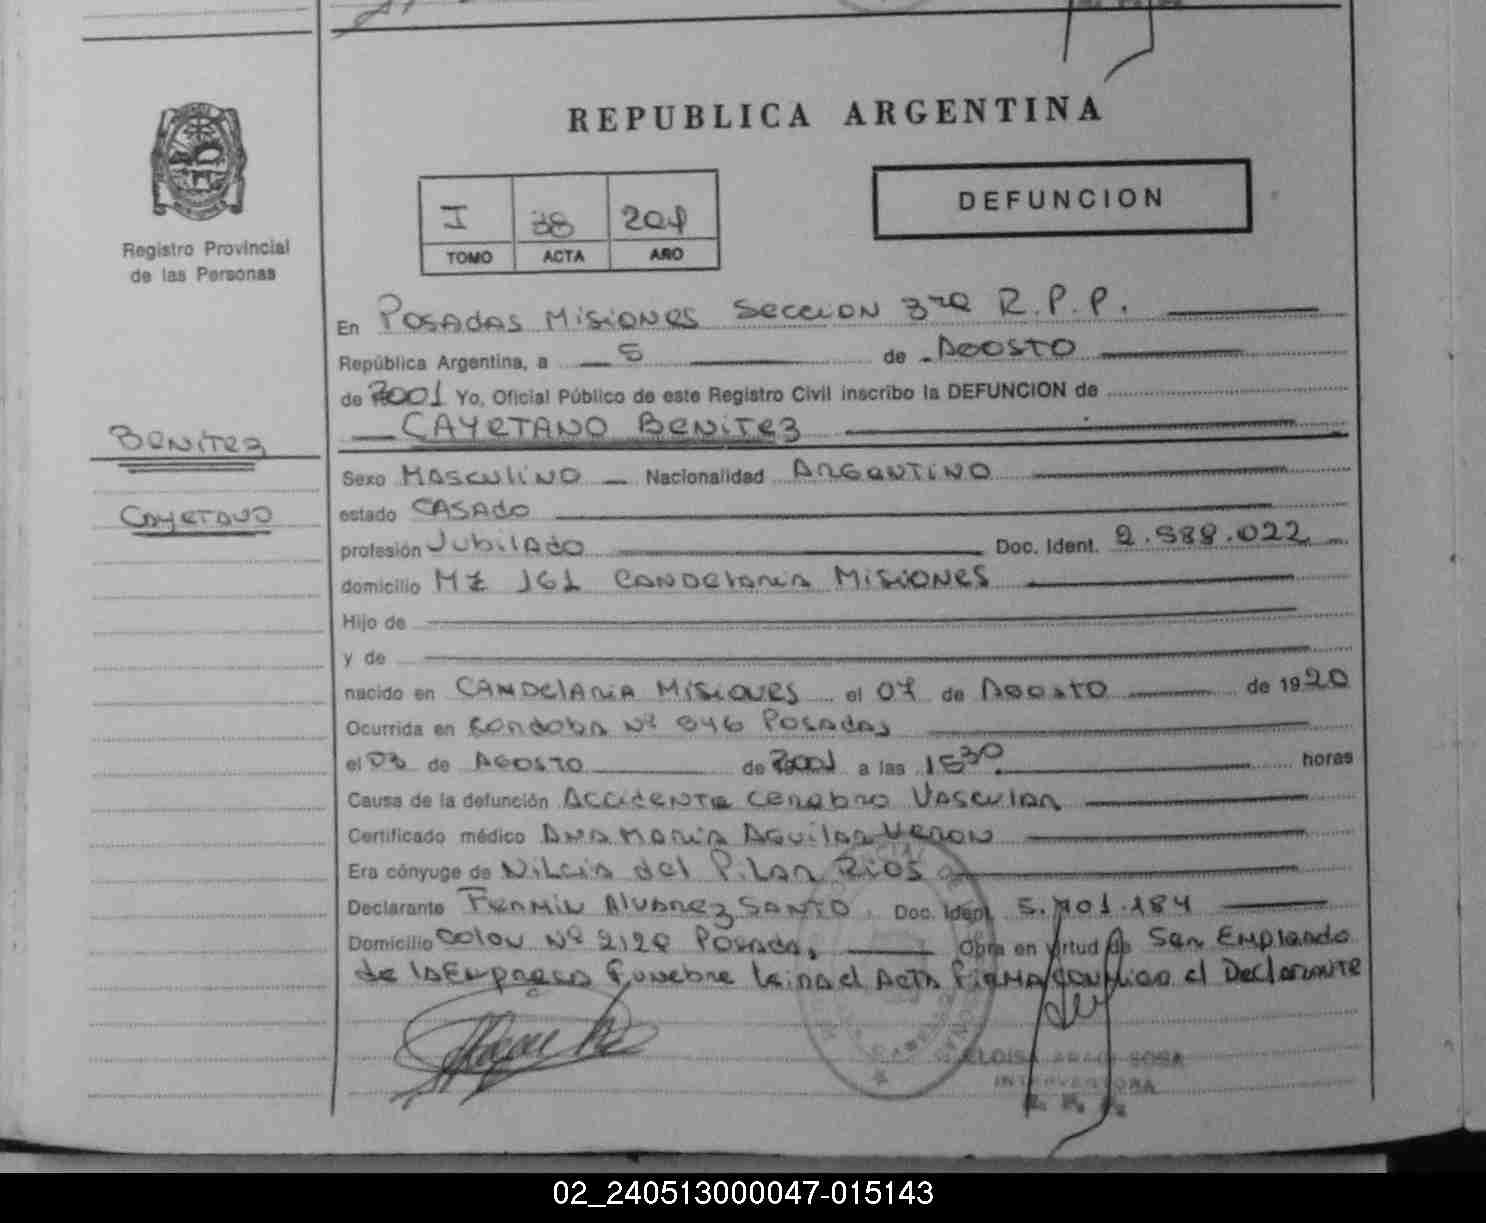 REPUBLICA ARGENTINA
DEFUNCION
I 38
TOMO ACTA AÑO
Registro Provincial
de las Personas
En POSADAS MISIONES SECCION 3ra R.P.P.
República Argentina, a 5 de AGOSTO
de 2001 Yo, Oficial Público de este Registro Civil inscribo la DEFUNCION de
CAYETANO BENITEZ
BENITEZ
CAYETANO
Sexo MASCULINO Nacionalidad ARGENTINO
estado CASADO
profesión JUBILADO Doc. Ident. 2.588.022
domicilio MZ 161 CANDELARIA MISIONES
Hijo de
y de
nacido en CANDELARIA MISIONES el 07 de AGOSTO de 1920
Ocurrida en CORDOBA Nº 846 POSADAS
el 03 de AGOSTO de 2001 a las 1530 horas
Causa de la defunción ACCIDENTE CEREBRO VASCULAR
Certificado médico ANA MARIA AGUILAR VERON
Era cónyuge de NILCIA del PILAR RIOS
Declarante FERMIN ALVAREZ SANTO. Doc. Ident. 5.701.184
Domicilio COLON Nº 2128 POSADAS, Obra en virtud de SER EMPLEADO
de LA EMPRESA FUNEBRE leida el ACTA FIRMA CONMIGO el DeclaraNTE
ELOISA SOSA
INTERVENTORA
02_240513000047-015143